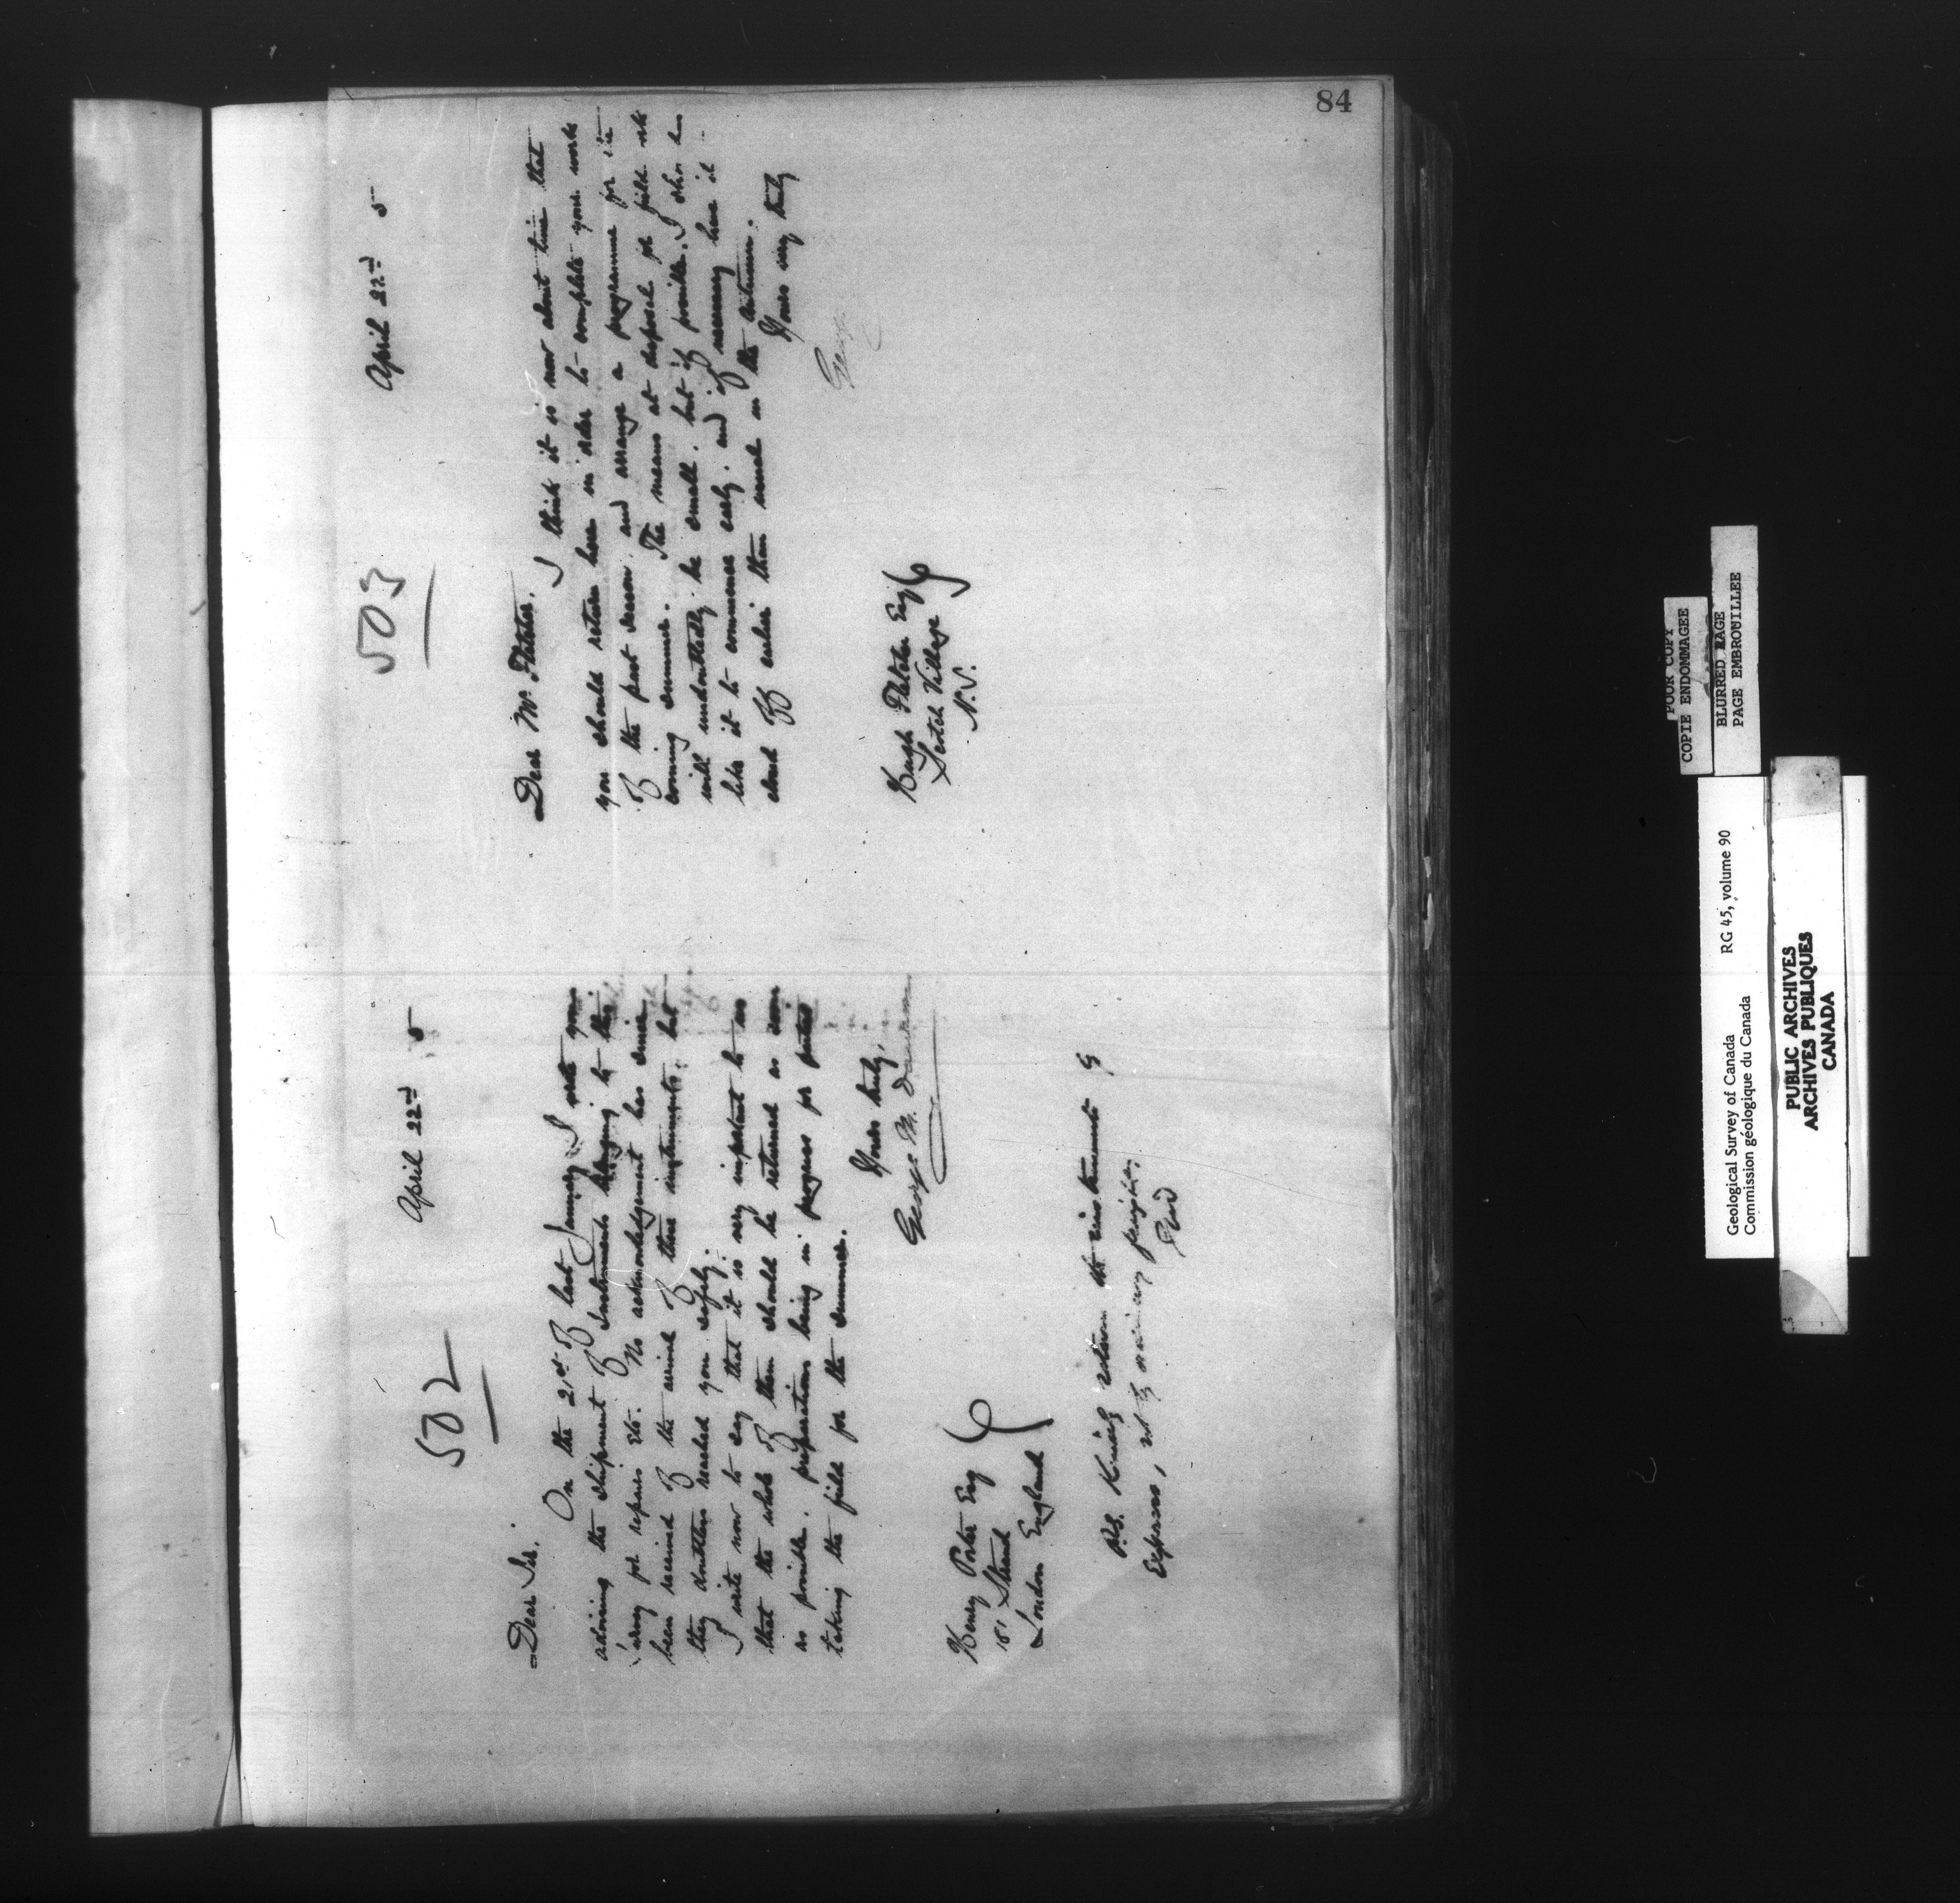 84
502
April 22nd 5
Dear Sir.
On the 21st of last January I wrote you
advising the shipment of Instruments belonging to this
Survey for repairs etc. No acknowledgment has since
been received of the arrival of these instruments, but
they doubtless reached you safely.
I write now to say that it is very important to us
that the whole of them should be returned as soon
as possible. preparations being in progress for parties
taking the field for the summer.
Yours truly,
George M. Dawson
Henry Porter Esq
181 Strand
London England
P.S. Kindly return the instruments by
Express, not by ordinary freight.
GMD
503
April 22nd 5
Dear Mr. Fletcher.
I think it is now about time that
you should return here in order to complete your work
of the past season, and arrange a programme for the
coming summer. The means at disposal for field work
will undoubtedly be small. but if possible. I should
like it to commence early. and if necessary have it
closed off earlier than usual in the autumn.
Yours very truly
George
Hugh Fletcher Esq
Scotch Village
N.S.
POOR COPY
COPIE ENDOMMAGEE
BLURRED PAGE
PAGE EMBROUILLEE
Geological Survey of Canada RG 45, volume 90
Commission géologique du Canada
PUBLIC ARCHIVES
ARCHIVES PUBLIQUES
CANADA